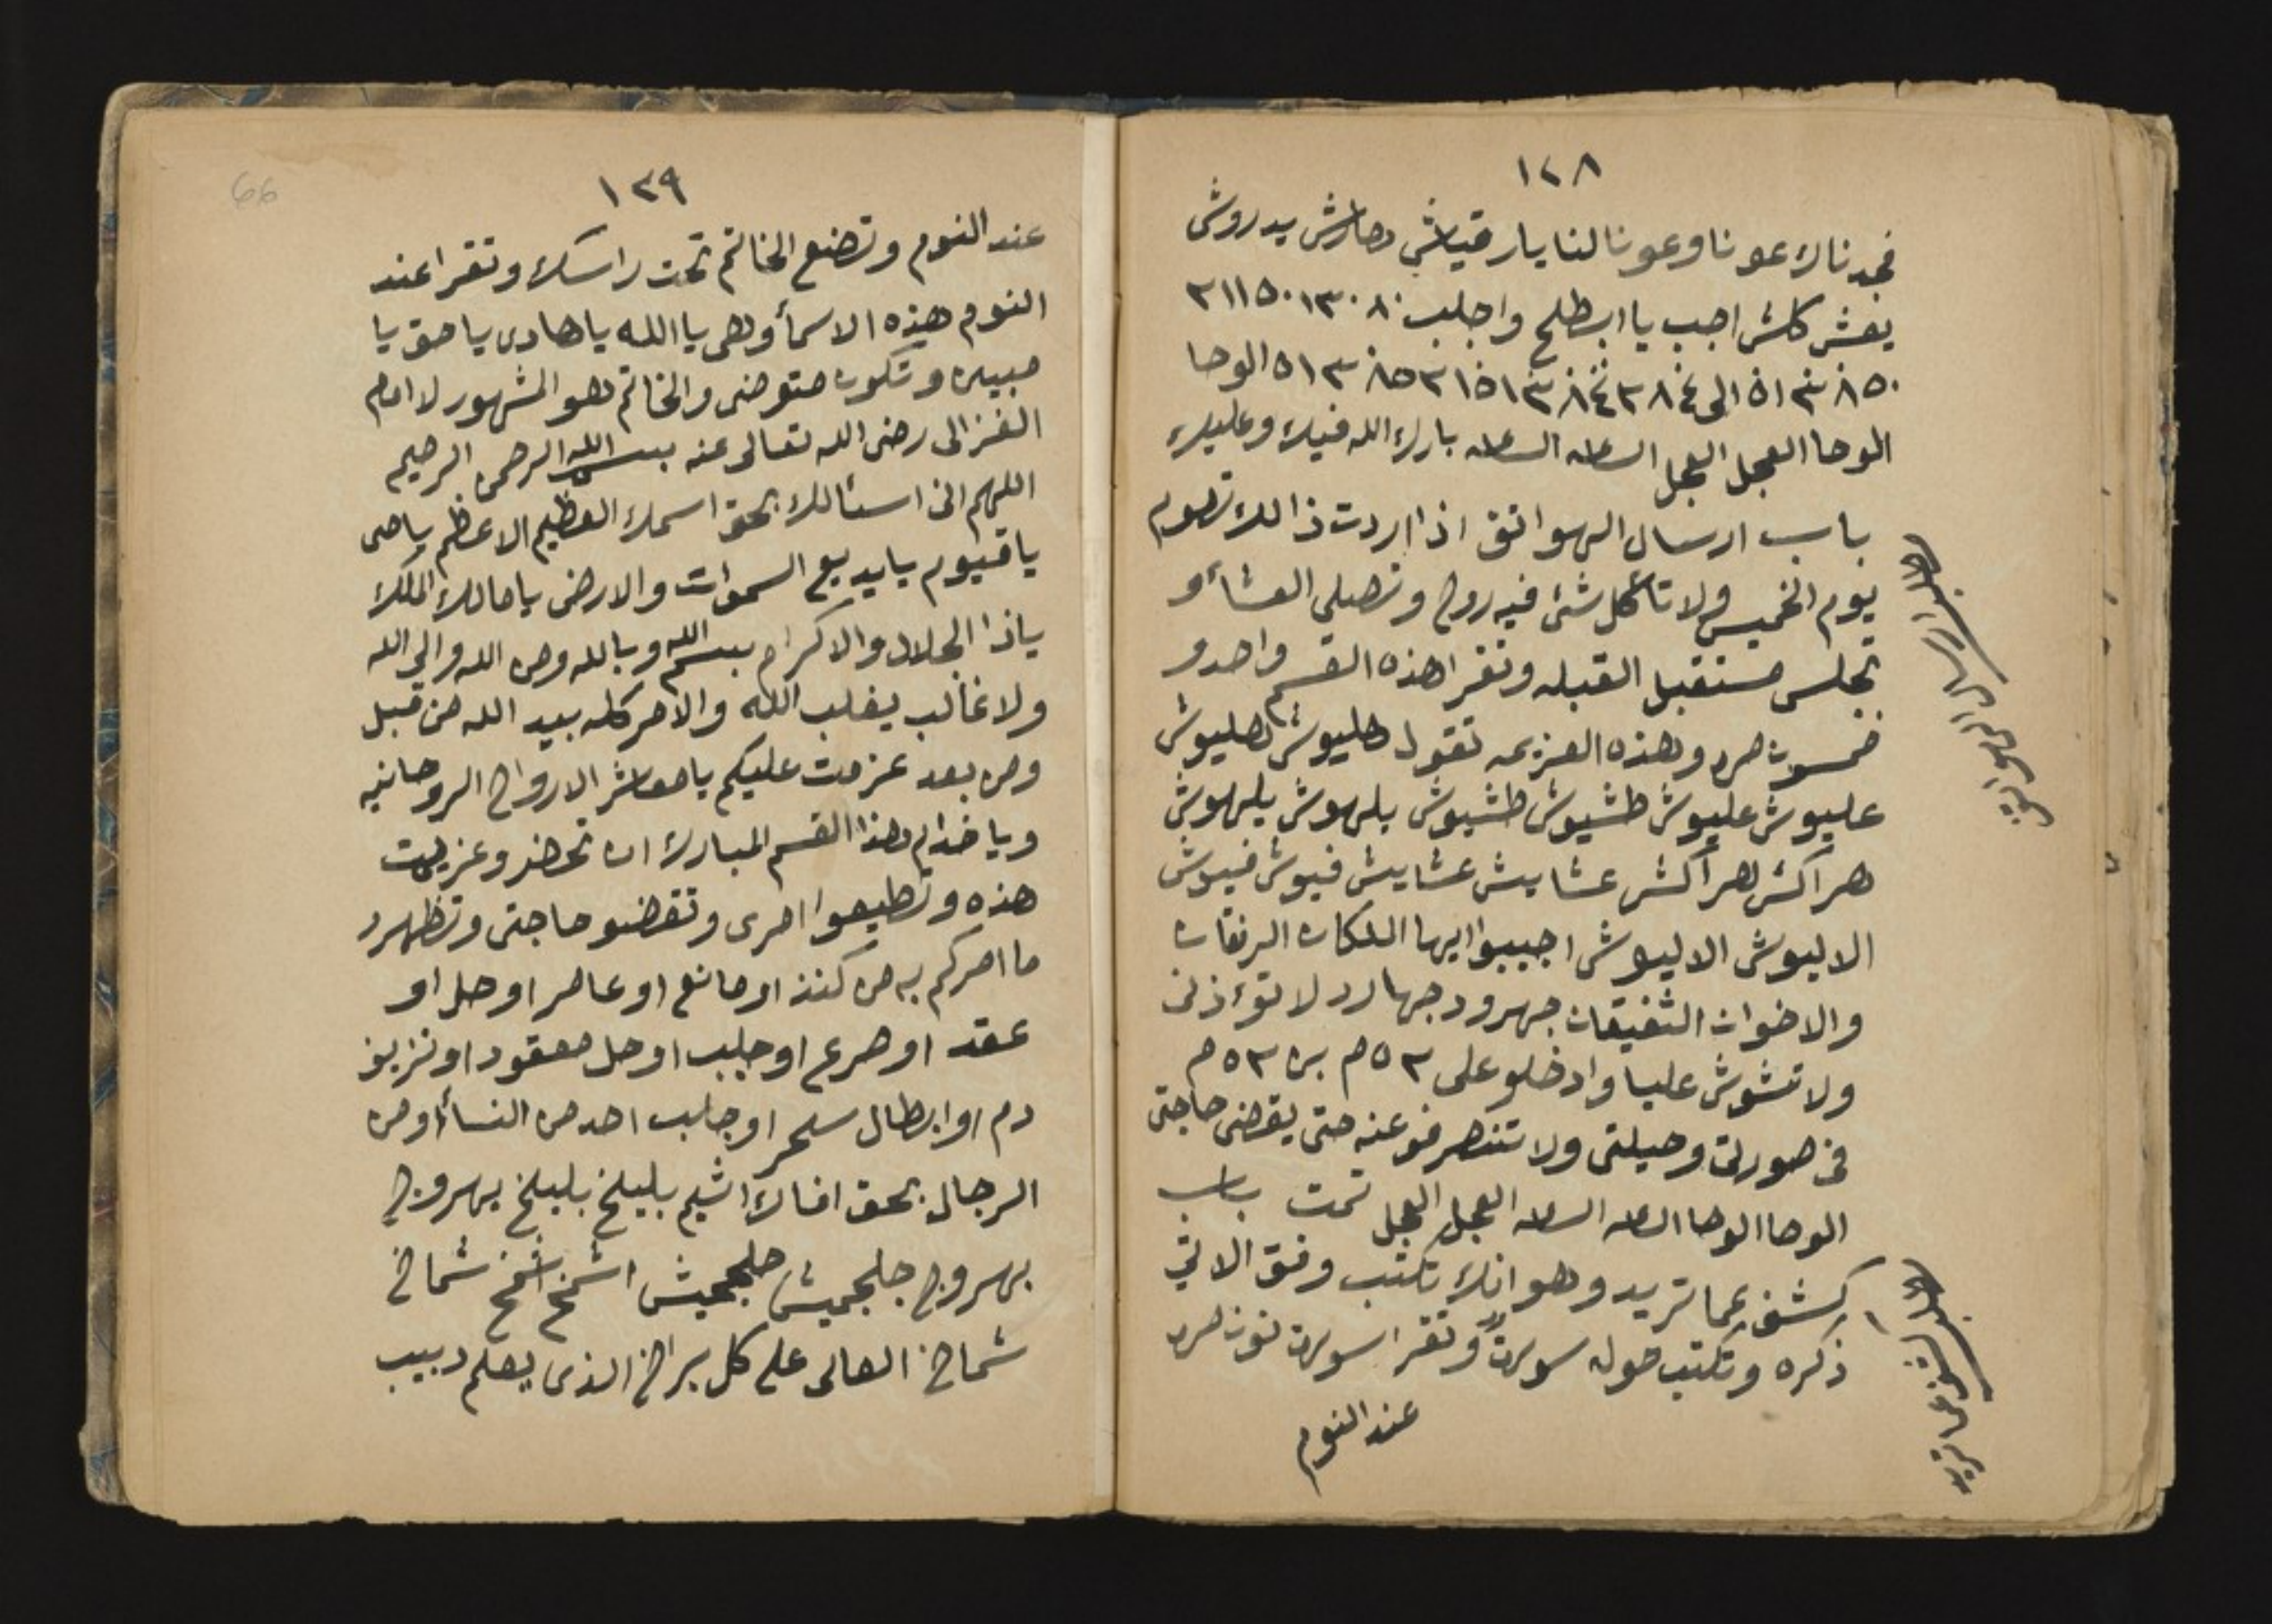 ١٢٨
فجدناك عونا وعونا لنا يا رقياش مهارش يدروش
يغش كلش اجب يا ابطلح واجلب ٨٠ ١٣٠ ٣١١٥٠
الوحا
الوحا العجل العجل الساعه الساعه بارك الله فيك وعليك
باب ارسال الهواتف اذا اردت ذالك تصوم
يوم الخميس ولا تأكل شئ فيه روح وتصلي العشأ و
تجلس مستقبل القبله وتقرا هذه القسم واحد و
خمسون مره وهذه العزيمه تقول هليوش هليوش
عليوش عليوش طشيوش طشيوش يلهوش يلهوش
هراكش هراكش عشايش عشايش فيوش فيوش
الاليوش الاليوش اجيبوا ايها الملكان الرفقان
والاخوان الشفيقان جهرود جهارد لا تؤذنى
ولا تشوش عليا وادخلو على ٥٣م بن ٥٣م
فى صورتى وحيلتى ولا تنصرفو عنه حتى يقضى حاجتى
الوحا الوحا الساعه الساعه العجل العجل تمت باب
كشف عما تريد وهو انك تكتب وفق الاتي
ذكره وتكتب حوله سورة وتقرا سورة نون مره
عند النوم
باب ارسال الهواتف
باب كشف عما تريد
١٢٩
66
عند النوم وتضع الخاتم تحت راسك وتقرا عند
النوم هذه الاسمأ وهى يا الله يا هادى يا حق يا
مبين وتكون متوضى والخاتم هو المشهور لامام
الغزالى رضى الله تعالى عنه بسم الله الرحمن الرحيم
اللهم انى اسئالك بحق اسمك العظيم الاعظم يا حى
يا قيوم يا بديع السموات والارض يا مالك الملك
ياذا الجلال والاكرام بسم الله وبالله ومن الله والى الله
ولا غالب يغلب الله والامر كله بيد الله من قبل
ومن بعد عزمت عليكم يا معاشر الارواح الروحانيه
ويا خدام هذا القسم المبارك ان تحضرو عزيمت
هذه وتطيعوا امرى وتقضو حاجتى وتظهرو
ما امركم به من كنز او مانع او عامر او حل او
عقد او صرع او جلب او حل معقود او نزيف
دم او ابطال سحر او جلب احد من النسأ او من
الرجال بحق افاك اشيم بليلخ بليلخ بهروج
بهروج جلجميش جلجميش اشمخ اشمخ شماخ
شماخ العالى على كل براخ الذى يعلم دبيب